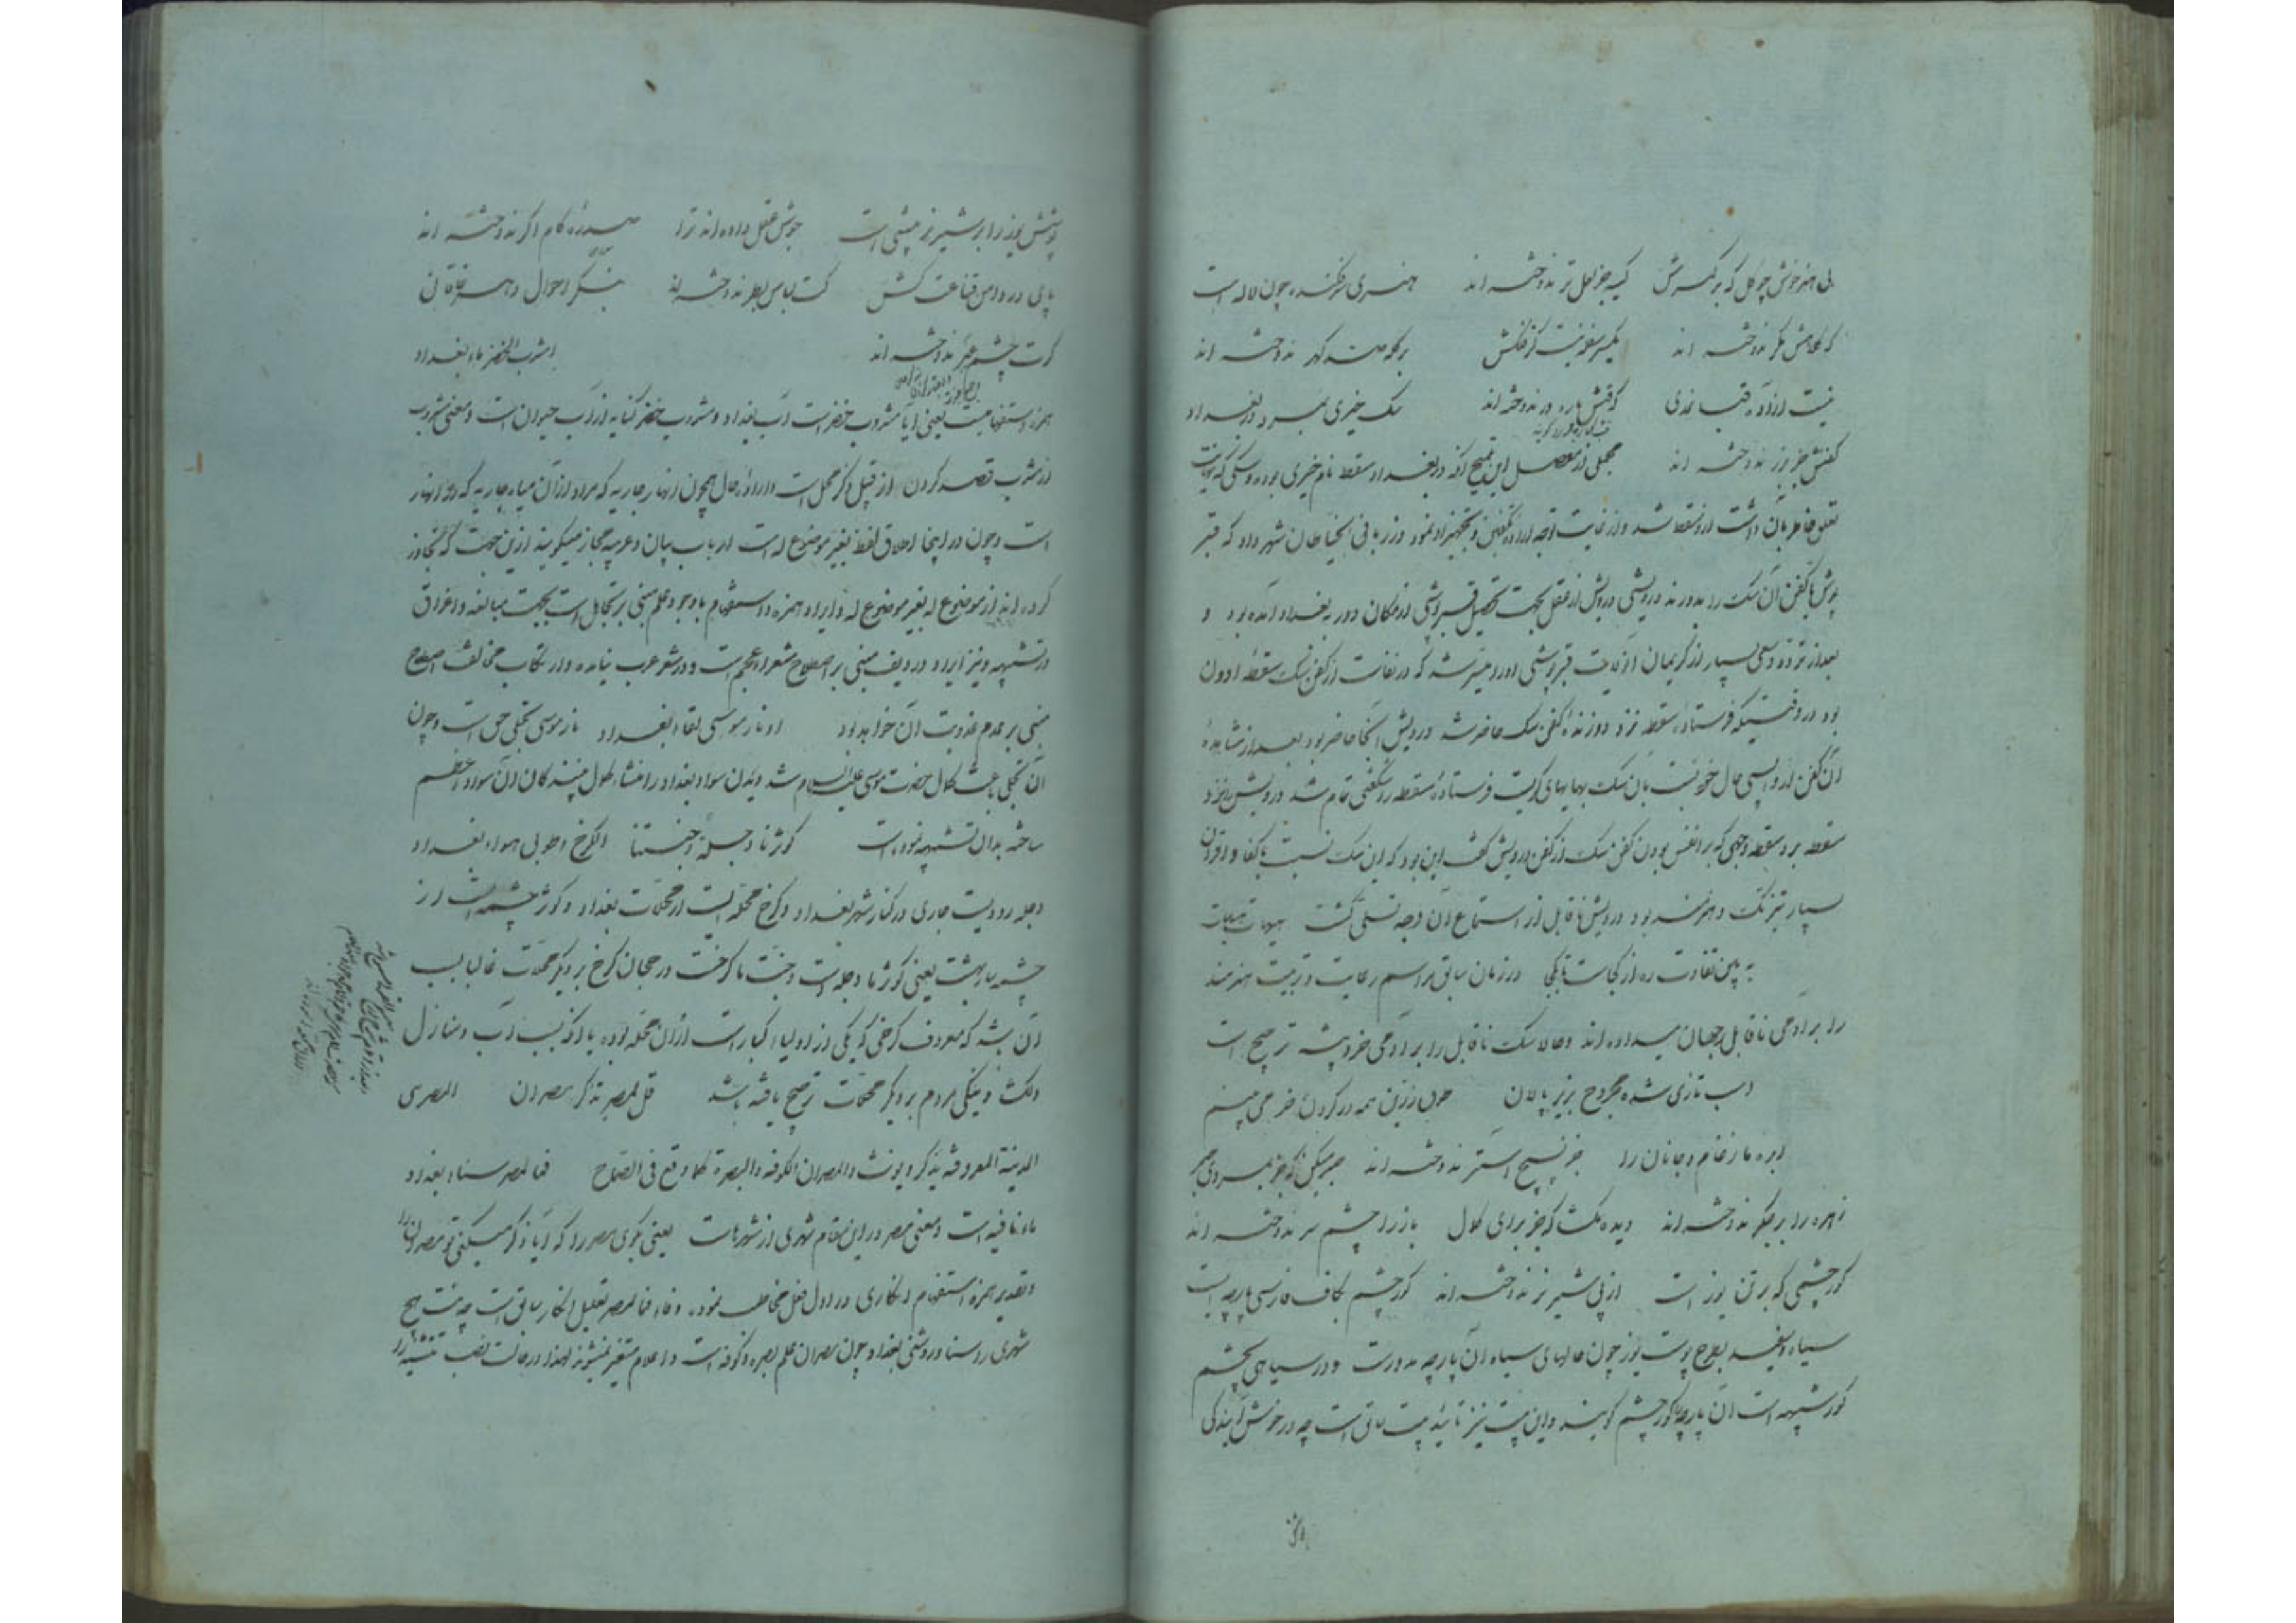 بی هنر خوش چو گل که بر کمرش کیسه جز لعل تر ندوخته اند هنری سرفکنده چون لاله است
که کلاهش مگر ندوخته اند یکسر سفره نیست کز فلکش برکه صد کهر ندوخته اند
نیست آزاده قبا نمدی که قبش پاره در ندوخته اند سک خیری بمرد در بغداد
کفنش جز بزر ندوخته اند مجملی از مفصل این تلمیح آنکه در بغداد سقط نام خیری بوده و سکی که نهایت
تعلق خاطر بآن داشت از و سقط شد و از غایت توجه اراده تکفین و تجهیز او نمود و زر بافی بخیاطان شهر داد که قبر
پوش با کفن آن سک را بدوزند درویشی درویش از عقل بجهت تحصیل قبر پوشی از مکان دور ببغداد آمده بود و
بعد از تردد و سعی بسیار از کریمان آنولایت قبرپوشی او را میسر شد که در نفاست از کفن سک سقط ادون
بود در وقتیکه فرستاده سقط نزد دوزنده کفن سک حاضر شد درویش آنجا حاضر بود بعد از مشاهده
آن کفن از واپسی حال خود نسبت بآن سک بهایهای گریست فرستاده سقط را شگفتی تمام شد درویش را نزد
سقط برد سقط وجهی که بر انفس بودن کفن سک از کفن درویش گفت این بود که این سک نسبت باکفا و اقران
بسیار تیز تک و هنرمند بود درویش ناقابل از استماع آن وجه تسلی گشت هیهات هیهات
به بین تفاوت ره از کجاست تا بکجا در زمان سابق مراسم رعایت و تربیت هنرمند
را بر آدمی ناقابل رجهان میداده اند و حالا سک ناقابل را بر آدمی خردپیشه ترجیح است
اسب تازی شده مجروح بزیر پالان طوق زرین همه در گردن خر می بینم
ابره ما زخام و جانان را جز نسیج استر ندوخته اند صبر میکن که جز بمرودی صبر
زهره را بر جگر ندوخته اند دیده مکشا که جز برای کمال باز را چشم سر ندوخته اند
کورچشمی که بر تن یوز است از پی شیر نر ندوخته اند کورچشم بکاف فارسی پارچه ایست
سیاه و سفید بطرح پوست یوز چون خالهای سیاه آن پارچه مدورست و در سیاهی بچشم
کور شبیه است آن پارچه را کورچشم گویند و این بیت نیز تائید بیت سابق است چه در خوش آیندگی
پوشش یوز را بر شیر نر پیشی است جوشش عقل داده اند ترا صدره کام اگر ندوخته اند
پای در دامن قناعت کش کت لباس بطر ندوخته اند بنگر احوال دهر خاقانی
کرت چشم عبر ندوخته اند امشرب الخضر ماء بغداد
همزه استفهامیست یعنی آیا مشروب خضر است آب بغداد و مشروب خضر کنایه از آب حیوان است و معنی مشروب
از مشرب قصد کردن از قبیل ذکر محل است و اراده حال همچون انهار جاریه که مراد از آن میاه جاریه که در انهار
است و چون در اینجا اطلاق لفظ بغیر موضوع له است ارباب بیان و عربیه مجاز میگویند ازین جهت که تجاوز
کرده اند از موضوع له بغیر موضوع له و ایراد همزه و استفهام با وجود علم مبنی بر تجاهل است بجهت مبالغه و اغراق
در تشبیه و نیز ایراد ردیف مبنی بر اصطلاح شعراء عجم است و در شعر عرب نیامده و ارتکاب مخالف اصطلاح
مبنی بر عدم عذوبت آن خواهد بود او نار موسی لقاء بغداد نار موسی تجلی حق است و چون
آن تجلی باعث کمال حضرت موسی علیه السلام شد دیدن سواد بغداد را منشاء کمال بیننده کان آن سواد اعظم
ساخته بدان تشبیه نموده است کوثرنا دجلة وجنتنا الکرخ اطوبی هواء بغداد
دجله رودیست جاری در کنار شهر بغداد و کرخ محله ایست از محلات بغداد و کوثر چشمه ایست از
چشمه سار بهشت یعنی کوثر ما دجله است و جنت ما کرخست و رجحان کرخ بر دیگر محلات غالبا بسبب
آن شد که معروف کرخی که یکی از اولیاء کبار است از آن محله بوده یا آنکه بسبب آب و منازل
دلکشا و نیکی مردم بر دیگر محلات ترجیح یافته باشد قل لمصر تذکر مصران المصری
المدینة المعروفة یذکر و یونث و المصران الکوفه و البصرة کما وقع فی الصحاح فما لمصر سناء بغداد
ماء نافیه است و معنی مصر در این مقام شهری از شهرهاست یعنی بگوی مصر را که آیا ذکر میکنی تو مصران را
و تقدیر همزه استفهام انکاری در اول فعل مخاطب نمود و فاء فما لمصر تعلیل انکار سابق است چه نیست هیچ
شهری را سنا و روشنی بغداد و چون مصران علم بصره و کوفه است و اعلام متغیر نمیشوند لهذا در حالت نصب تثنیه را